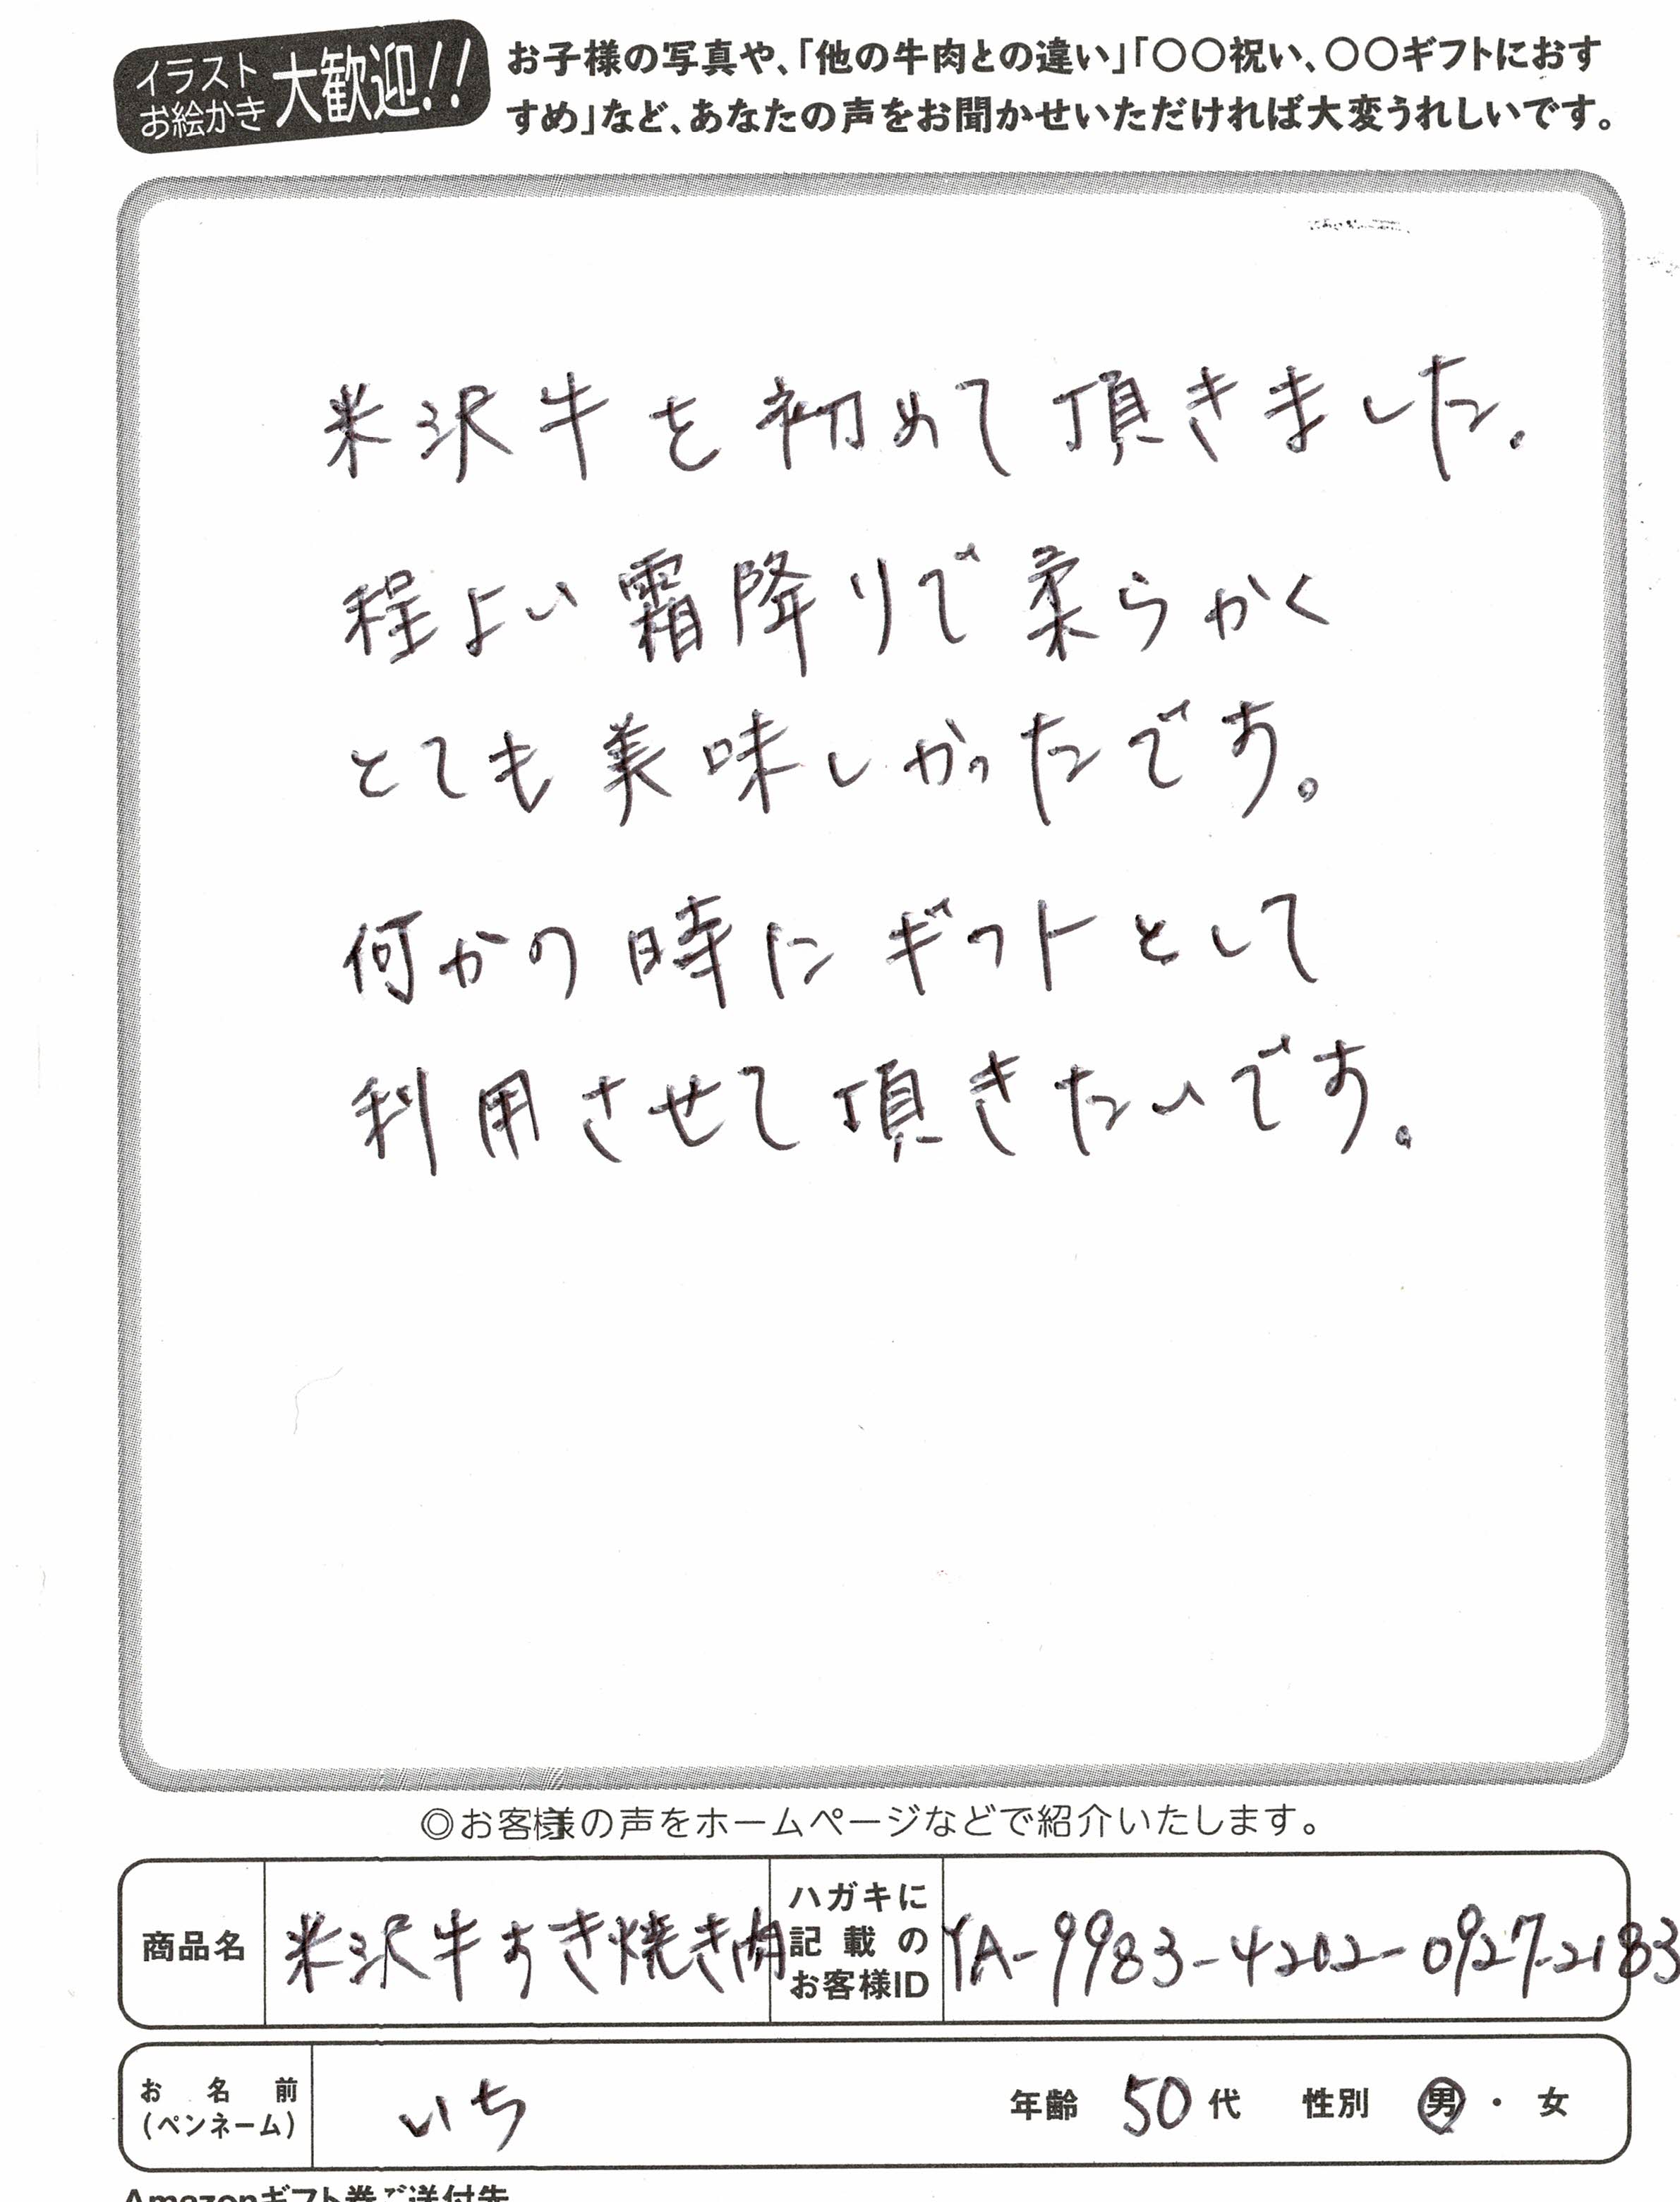 イラスト
お絵かき
大歓迎!!
お子様の写真や、「他の牛肉との違い」「〇〇祝い、〇〇ギフトにおす
すめ」など、あなたの声をお聞かせいただければ大変うれしいです。
米沢牛を初めて頂きました。
程よい霜降りで柔らかく
とても美味しかったです。
何かの時にギフトとして
利用させて頂きたいです。
◎お客様の声をホームページなどで紹介いたします。
商品名 米沢牛すき焼き肉
ハガキに
記載の
お客様ID
YA-9983-4202-0927-2183
お名前
(ペンネーム)
いち
年齢 50代 性別 男・女
Amazonギフト券ご送付先